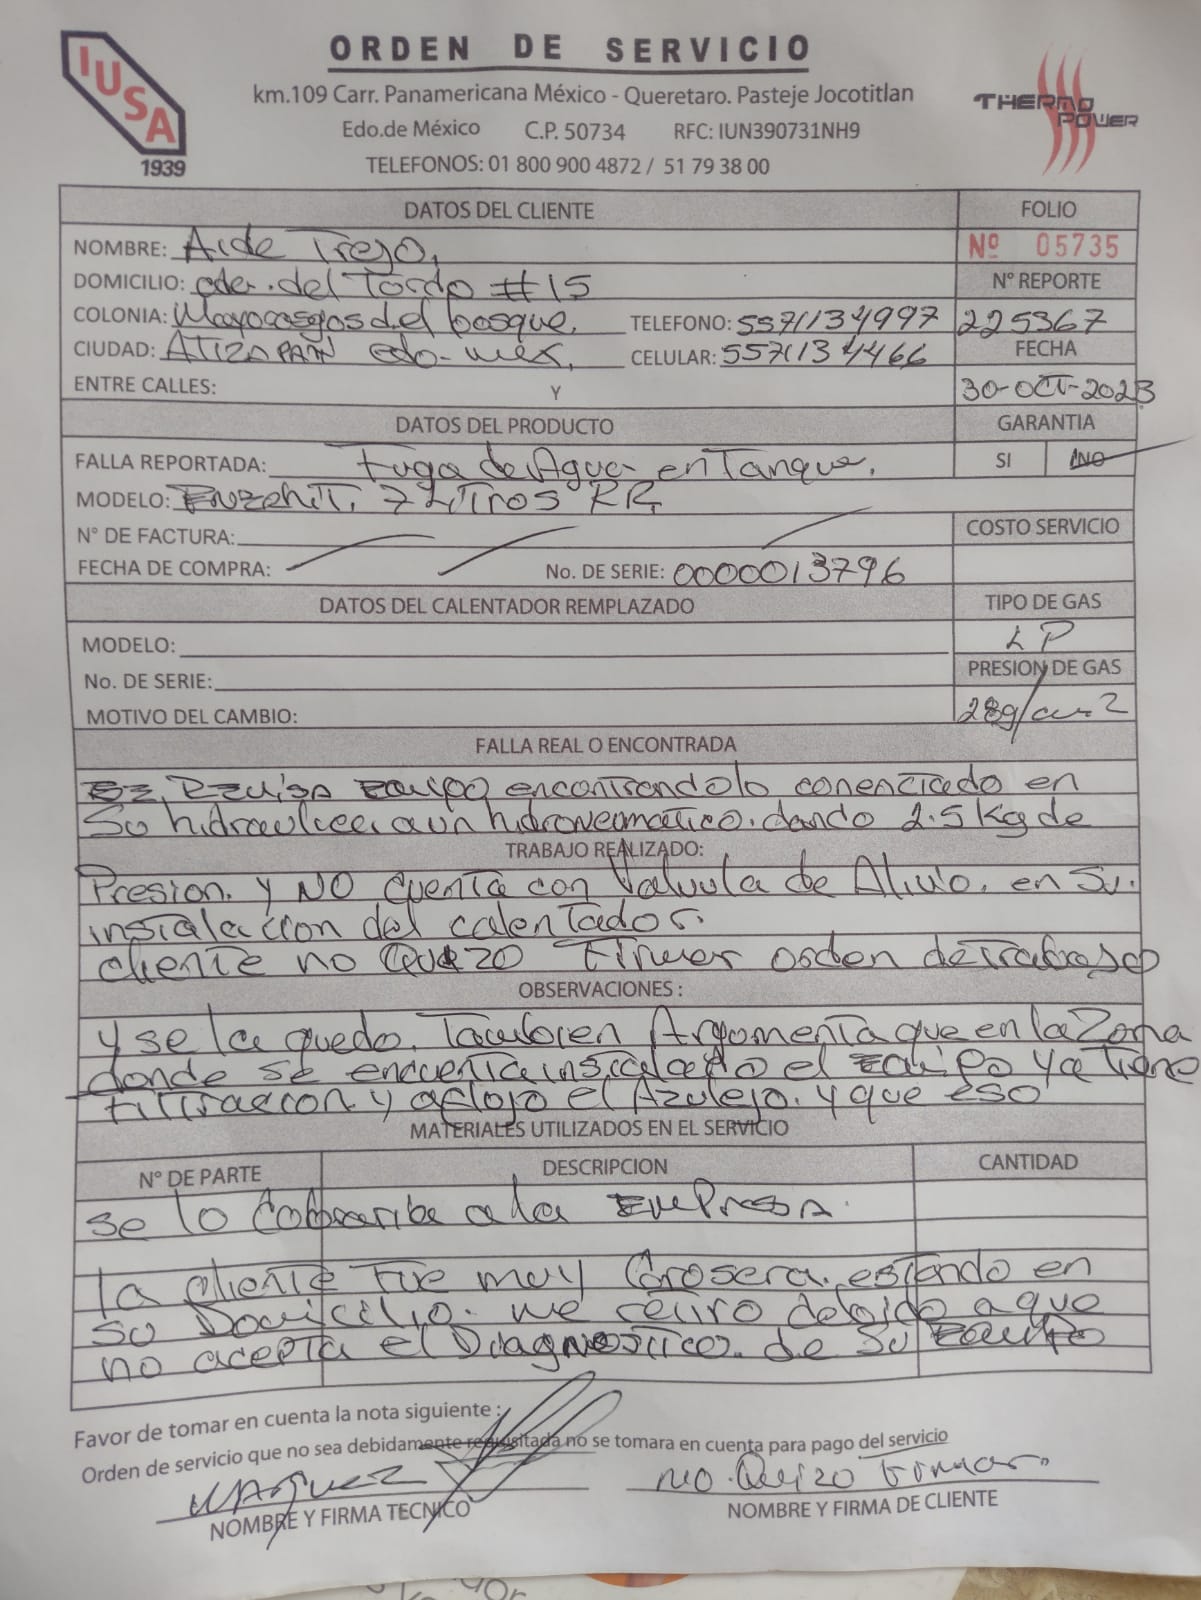 IUSA
1939
ORDEN DE SERVICIO
km.109 Carr. Panamericana México - Queretaro. Pasteje Jocotitlan
Edo.de México C.P. 50734 RFC: IUN390731NH9
TELEFONOS: 01 800 900 4872 / 51 79 38 00
THERMO POWER
DATOS DEL CLIENTE
FOLIO
NOMBRE: Aide Trejo.
Nº 05735
DOMICILIO: cder. del Tordo #15
Nº REPORTE
COLONIA: Mayorasgos del bosque. TELEFONO: 5571134997
225367
CIUDAD: ATIZAPAN edo-mex. CELULAR: 5571134466
FECHA
ENTRE CALLES: Y
30-OCT-2023
DATOS DEL PRODUCTO
GARANTIA
FALLA REPORTADA: Fuga de Agua en Tanque.
SI NO
MODELO: 7 LiTros RR.
N° DE FACTURA:
COSTO SERVICIO
FECHA DE COMPRA: No. DE SERIE: 0000013796
DATOS DEL CALENTADOR REMPLAZADO
TIPO DE GAS
MODELO:
LP
No. DE SERIE:
PRESION DE GAS
MOTIVO DEL CAMBIO:
28g/cm2
FALLA REAL O ENCONTRADA
Se Revisa Equipo encontrandolo conenctado en
Su hidraulica a un hidroneumatico. dando 2.5 Kg de
TRABAJO REALIZADO:
Presion. y NO cuenta con Valvula de Alivio. en Su.
instalacion del calentador.
cliente no Quizo Firmar orden de trabajo
OBSERVACIONES :
y se la quedo. Tambien Argomenta que en la Zona
donde se encuentra instalado el Equipo ya tiene
filtracion y aflojo el Azulejo. y que eso
MATERIALES UTILIZADOS EN EL SERVICIO
N° DE PARTE DESCRIPCION CANTIDAD
se lo Cobrariba a la EmPresa.
la cliente Fue muy Grosera. estando en
su Domicilio. me retiro debido a que
no acepta el Diagnostico. de Su Equipo
Favor de tomar en cuenta la nota siguiente :
Orden de servicio que no sea debidamente requisitada no se tomara en cuenta para pago del servicio
MARQUEZ
no. Quizo Firmar.
NOMBRE Y FIRMA TECNICO
NOMBRE Y FIRMA DE CLIENTE